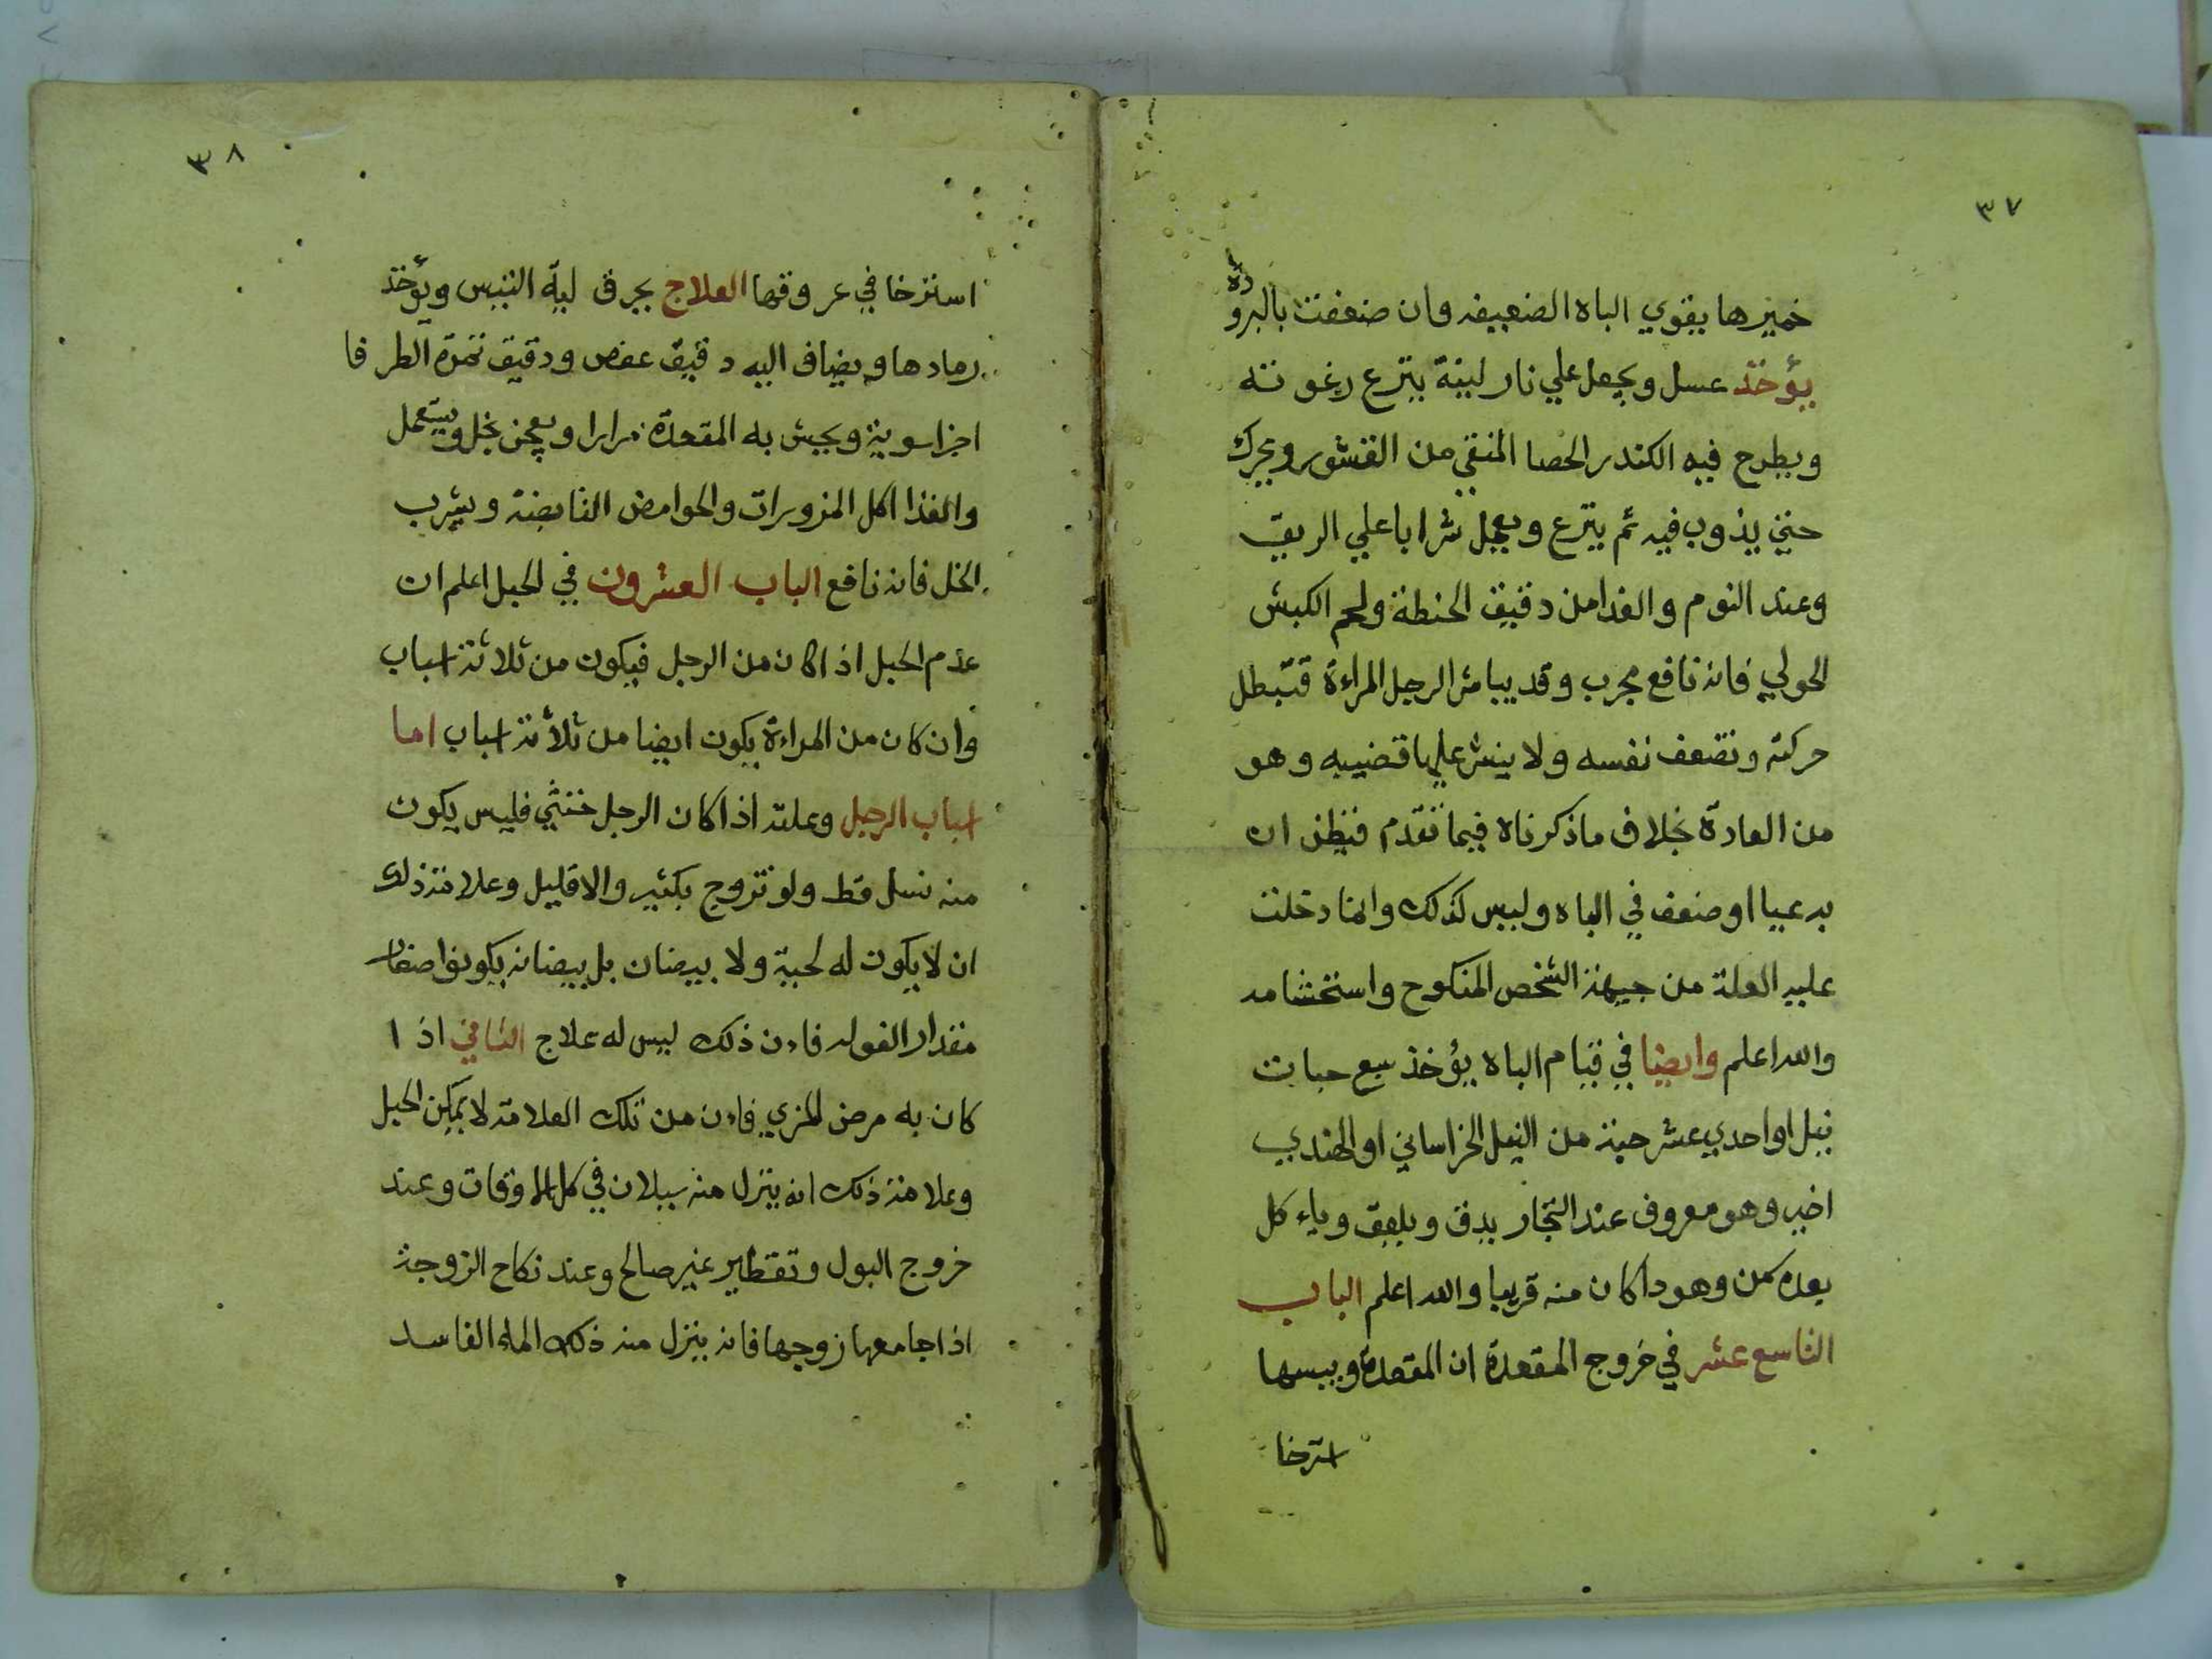 ٣٧
خميرها يقوي الباه الضعيفه وان ضعفت بالبرودة
يؤخذ عسل ويجعل علي نار لينة ينزع رغوته
ويطرح فيه الكندر الحصا المنقي من القشور ويحرك
حتي يذوب فيه ثم ينزع ويعمل شرابا علي الريق
وعند النوم والغدا من دقيق الحنطة ولحم الكبش
الحولي فانه نافع مجرب وقد يباشر الرجل المراءة فتبطل
حركته وتضعف نفسه ولا ينشر عليها قضيبه وهو
من العادة بخلاف ما ذكرناه فيما تقدم فيظن ان
به عيا او ضعف في الباه وليس كذلك وانما دخلت
عليه العلة من جيهة الشخص المنكوح واستحشامه
والله اعلم وايضا في قيام الباه يؤخذ سبع حبات
نيل او احدي عشر حبة من النيل الخراساني او الهندي
اخير وهو معروف عند التجار يدق ويلعق وياء كل
كمن وهو داكان منه قريبا والله اعلم الباب
التاسع عشر في خروج المقعدة ان المقعدة وبيسها
استرخا
٣٨
استرخا في عروقها العلاج يحرق لية التيس ويؤخذ
رمادها ويضاف اليه دقيق عفص ودقيق ثمرة الطرفا
اجزا سوية ويحبش به المقعدة مرارا ويعجن بخل ويستعمل
والغذا اكل المزورات والحوامض القابضة ويشرب
الخل فانه نافع الباب العشرون في الحبل اعلم ان
عدم الحبل اذا كان من الرجل فيكون من ثلاثة اسباب
وان كان من المراءة يكون ايضا من ثلاثة اسباب اما
اسباب الرجل وعلته اذا كان الرجل خنثي فليس يكون
منه نسل قط ولو تزوج بكثير والا قليل وعلامة ذلك
ان لا يكون له لحية ولا بيضان بل بيضانه يكونوا صغار
مقدار الفوله فاءن ذلك ليس له علاج الثاني اذا
كان به مرض المزي فاءن من تلك العلامة لا يمكن الحبل
وعلامة ذلك انه ينزل منه سيلان في كل الاوقات وعند
خروج البول وتقطير غير صالح وعند نكاح الزوجة
اذا جامعها زوجها فانه ينزل منه ذلك الماء الفاسد